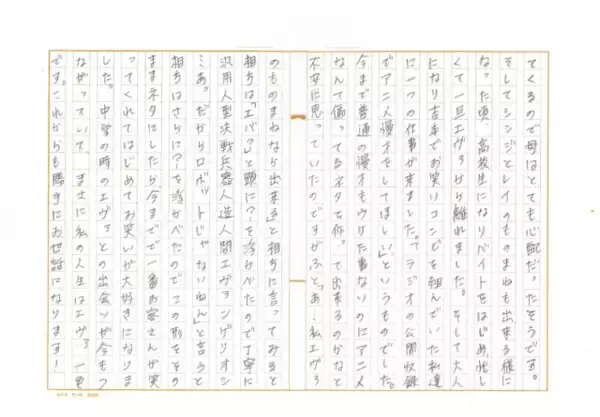 てくるので母はとても心配だったそうです。
そしてシンジとレイのものまねも出来る様に
なった頃、高校生になりバイトをはじめ、忙し
くて一旦エヴァから離れました。そして大人
になり吉本でお笑いコンビを組んでいた私達
に一つの仕事が来ました。「ラジオの公開収録
でアニメ漫才をしてほしい」というものでした。
今まで普通の漫才もウケた事ないのにアニメ
なんて偏ってるネタを作って出来るのかなと
不安に思っていたのですがふと「あ…私エヴァ
のものまねなら出来る」と相方に言ってみると
相方は「エバ?」と頭に?を浮かべたので丁寧に
汎用人型決戦兵器人造人間エヴァンゲリオン
…あっだからロボットじゃないねん」と言うと
相方はさらに?を浮かべたのでこの形をその
ままネタにしたら今までで一番お客さんが笑
ってくれてはじめてお笑いが大好きになりま
した。中学の時のエヴァとの出会いが今もつ
ながっていて、まさに私の人生はエヴァ一色
です。これからも勝手にお世話になります!